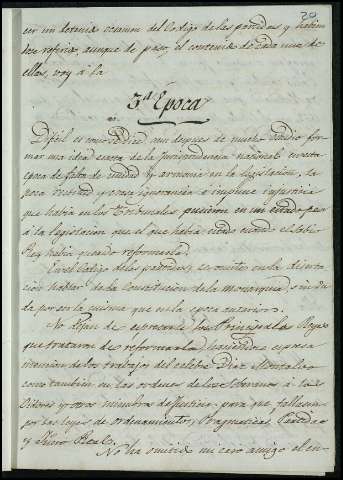 20
cer un detenido examen del Codigo de las partidas y habien
dose referido, aunque de paso, el contenido de cada una de
ellas, voy á la
3.ª Epoca
Dificil es aun despues de mucho estudio for
mar una idea exacta de la Jurisprudencia nacional en esta
epoca de falta de unidad y armonia en la legislacion, la
poca rectitud y crasa ignorancia é impune injusticia
que habia en los Tribunales pusieron en un estado peor
á la legislacion que el que habia tenido cuando el sabio
Rey habia querido reformarla.
En el Codigo de las partidas, se omite en la
hablar de la Constitucion de la monarquia,
de por ser la misma que en la epoca anterior.
No dejan de expresarse los Reyes
que trataron de reformar la
mencion de los trabajos del celebre Diaz Montalvo
como tambien en las ordenes de los Soberanos á los
Oidores y otros miembros de Justicia para que fallasen
por las leyes de ordenamiento, Pragmaticas, Partidas
y Fuero Real.
No ha omitido mi caro amigo el en